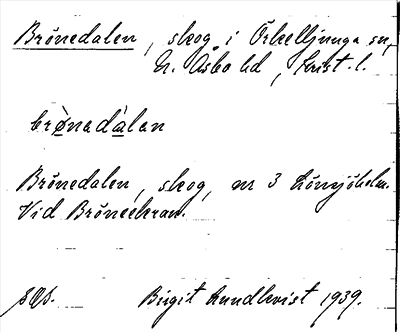 Brönedalen, skog i Örkelljunga sn,
N. Åsbo hd, Krist. l.
brö̀nadàlan
Brönedalen, skog, nr 3 Lönnsjöholm.
Vid Brönekran.
Birgit Lundkvist 1939.